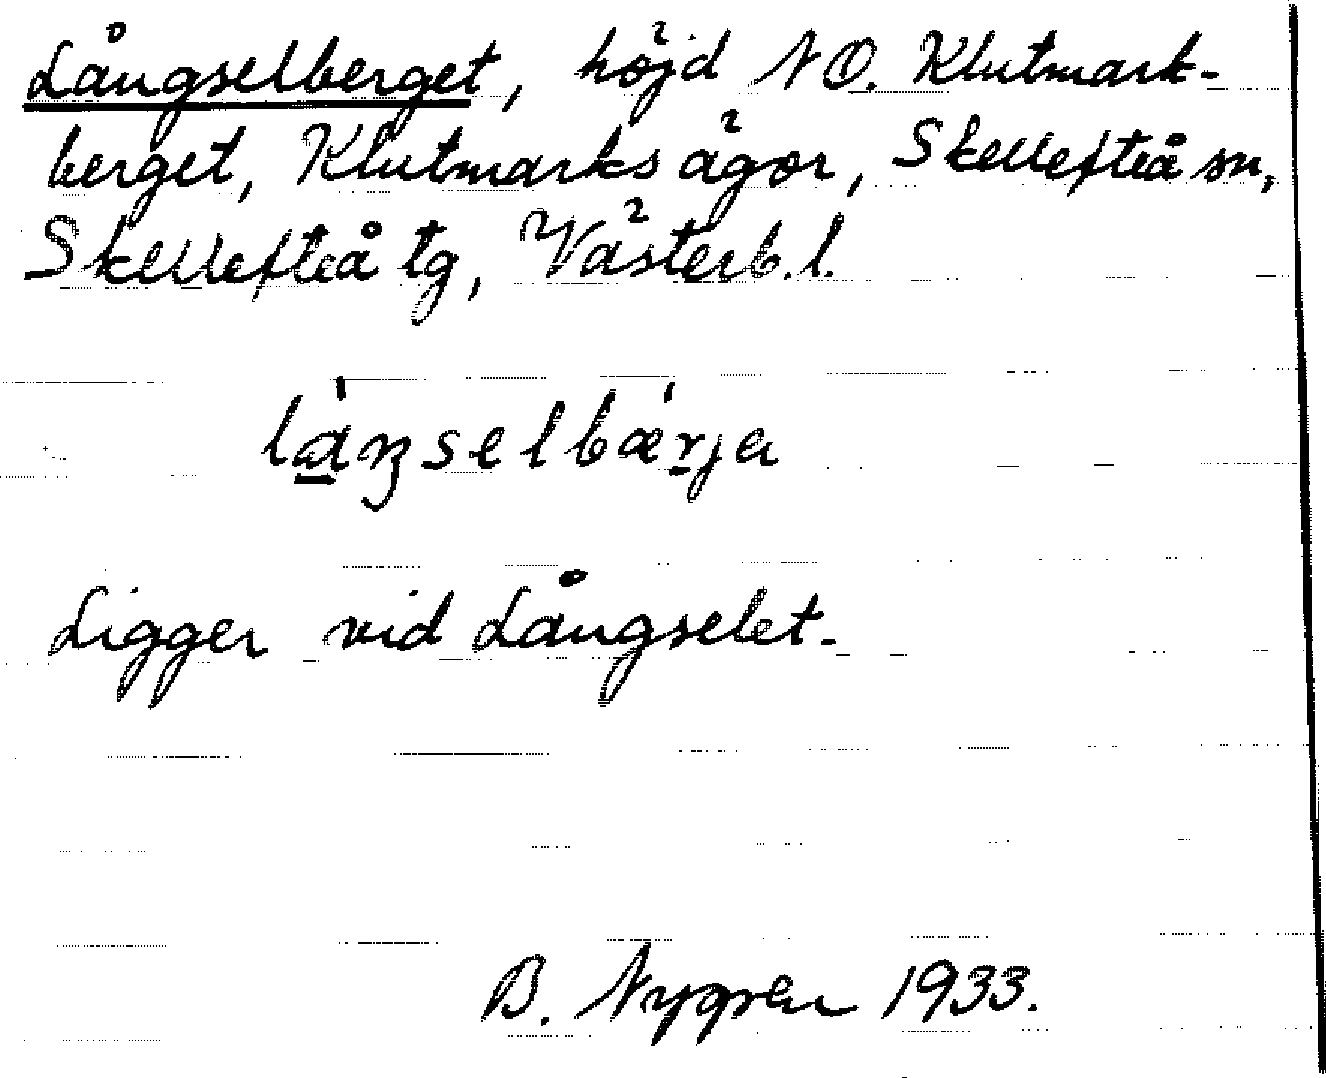 Långselberget, höjd NO. Klutmark-
berget, Klutmarks ägor, Skellefteå sn,
Skellefteå tg, Västerb. l.
la̱ŋselbærja
Ligger vid Långselet.
B. Nygren 1933.